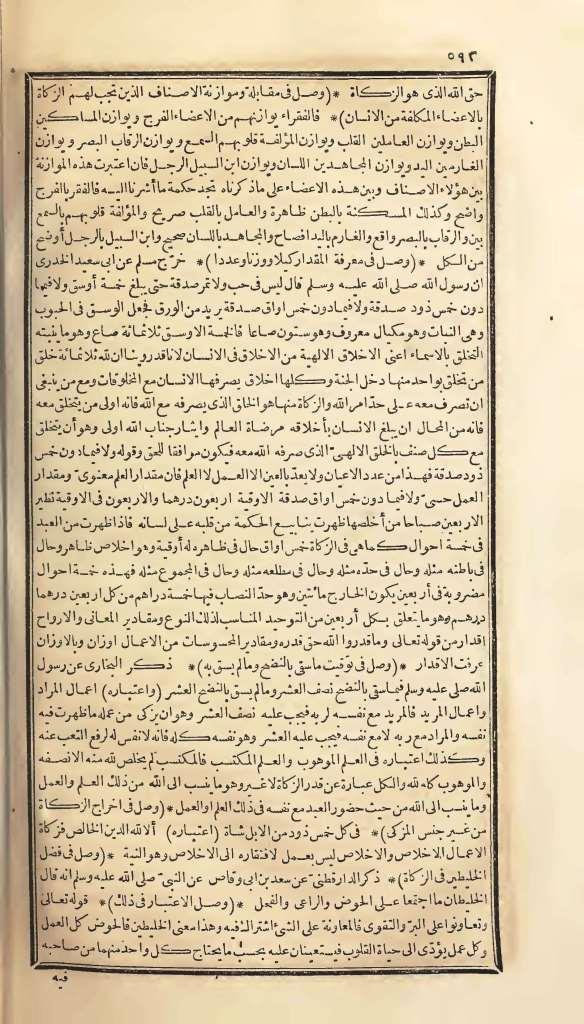 ٥٩٣
حق الله الذى هو الزكاة *(وصل فى مقابلة وموازنة الاصناف الذين تجب لهم الزكاة
بالاعضاء المكلفة من الانسان)* فالفقراء يوازنهم من الاعضاء الفرج و يوازن المساكين
البطن ويوازن العاملين القلب ويوازن المؤلفة قلوبهم السمع و يوازن الرقاب البصر ويوازن
الغارمين اليد ويوازن المجاهدين اللسان ويوازن ابن السبيل الرجل فان اعتبرت هذه الموازنة
بين هؤلاء الاصناف وبين هذه الاعضاء على ماذكرناه تجد حكمة ما أشرنا اليه فالفقر بالفرج
واضح وكذلك المسكنة بالبطن ظاهرة والعامل بالقلب صريح والمؤلفة قلوبهم بالسمع
بين والرقاب بالبصر واقع والغارم باليد افصاح والمجاهد باللسان صحيح وابن السبيل بالرجل أوضح
من الكل *(وصل فى معرفة المقدار كيلا ووزنا وعددا)* خرّج مسلم عن ابى سعيد الخدرى
ان رسول الله صلى الله عليه وسلم قال ليس فى حب ولا تمر صدقة حتى يبلغ خمسة أوسق ولا فيما
دون خمس ذود صدقة ولا فيما دون خمس اواق صدقة يريد من الورق فجعل الوسق فى الحبوب
وهى النبات وهو مكيال معروف وهو ستون صاعا فالخمسة الاوسق ثلاثمائة صاع وهو ما ينبته
التخلق بالاسماء اعنى الاخلاق الالهية من الاخلاق فى الانسان لانا قد روينا ان لله ثلاثمائة خلق
من تخلق بواحد منها دخل الجنة وكلها اخلاق يصرفها الانسان مع المخلوقات ومع من ينبغى
ان تصرف معه على حدّ امر الله والزكاة منها هو الخلق الذى يصرفه مع الله فانه اولى من يتخلق معه
فانه من المحال ان يبلغ الانسان بأخلاقه مرضاة العالم وايثار جناب الله اولى وهو أن يتخلق
مع كل صنف بالخلق الالهىّ الذى صرفه الله معه فيكون موافقا للحق وقوله ولا فيما دون خمس
ذود صدقة فهذا من عدد الاعيان ولا يعدّ بالعين الا العمل لا العلم فان مقدار العلم معنوىّ ومقدار
العمل حسىّ ولا فيما دون خمس اواق صدقة الاوقية اربعون درهما والاربعون فى الاوقية نظير
الاربعين صباحا من أخلصها ظهرت ينابيع الحكمة من قلبه على لسانه فاذا ظهرت من العبد
فى خمسة احوال كما هى فى الزكاة خمس اواق حال فى ظاهره له أوقية وهو اخلاص ظاهر وحال
فى باطنه مثله وحال فى حدّه مثله وحال فى مطلعه مثله وحال فى المجموع مثله فهذه خمسة احوال
مضروبة فى أربعين يكون الخارج مائتين وهو حدّ النصاب فيها خمسة دراهم من كل اربعين درهما
درهم وهو ما يتعلق بكل أربعين من التوحيد المناسب لذلك النوع ومقادير المعانى والارواح
اقدار من قوله تعالى وما قدروا الله حق قدره ومقادير المحسوسات من الاعمال اوزان وبالاوزان
عرفت الاقدار *(وصل فى توقيت ماسقى بالنضح ومالم يسق به)* ذكر البخارى عن رسول
الله صلى عليه وسلم فيما سقى بالنضح نصف العشر ومالم يسق بالنضح العشر (واعتباره) اعمال المراد
واعمال المريد فالمريد مع نفسه لربه فيجب عليه نصف العشر وهو ان يزكى من عمله ما ظهرت فيه
نفسه والمراد مع ربه لا مع نفسه فيجب عليه العشر وهو نفسه كله فانه لا نفس له لرفع التعب عنه
وكذلك اعتباره فى العلم الموهوب والعلم المكتسب فالمكتسب لم يخلص لله منه الا نصفه
والموهوب كله لله والكل عبارة عن قدر الزكاة لا غير وهو ما ينسب الى الله من ذلك العلم والعمل
وما ينسب الى الله من حيث حضور العبد مع نفسه فى ذلك العلم او العمل *(وصل فى اخراج الزكاة
من غير جنس المزكى)* فى كل خمس ذود من الابل شاة (اعتباره) ألا لله الدين الخالص فزكاة
الاعمال الاخلاص والاخلاص ليس بعمل لافتقاره الى الاخلاص وهو النية *(وصل فى فضل
الخليطين فى الزكاة)* ذكر الدارقطنىّ عن سعد بن ابى وقاص عن النبىّ صلى الله عليه وسلم انه قال
الخليطان ما اجتمعا على الحوض والراعى والفحل *(وصل الاعتبار فى ذلك)* قوله تعالى
وتعاونوا على البرّ والتقوى فالمعاونة على الشئ اشتراك فيه وهذا معنى الخليطين فالحوض كل العمل
وكل عمل يؤدّى الى حياة القلوب فيستعينان عليه بحسب ما يحتاج كل واحد منهما من صاحبه
فيه